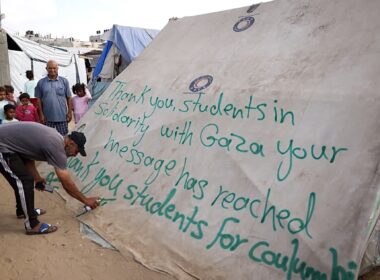 Thank you, students in
Solidarity with Gaza your
message has reached
Thank you students for
coulumbi